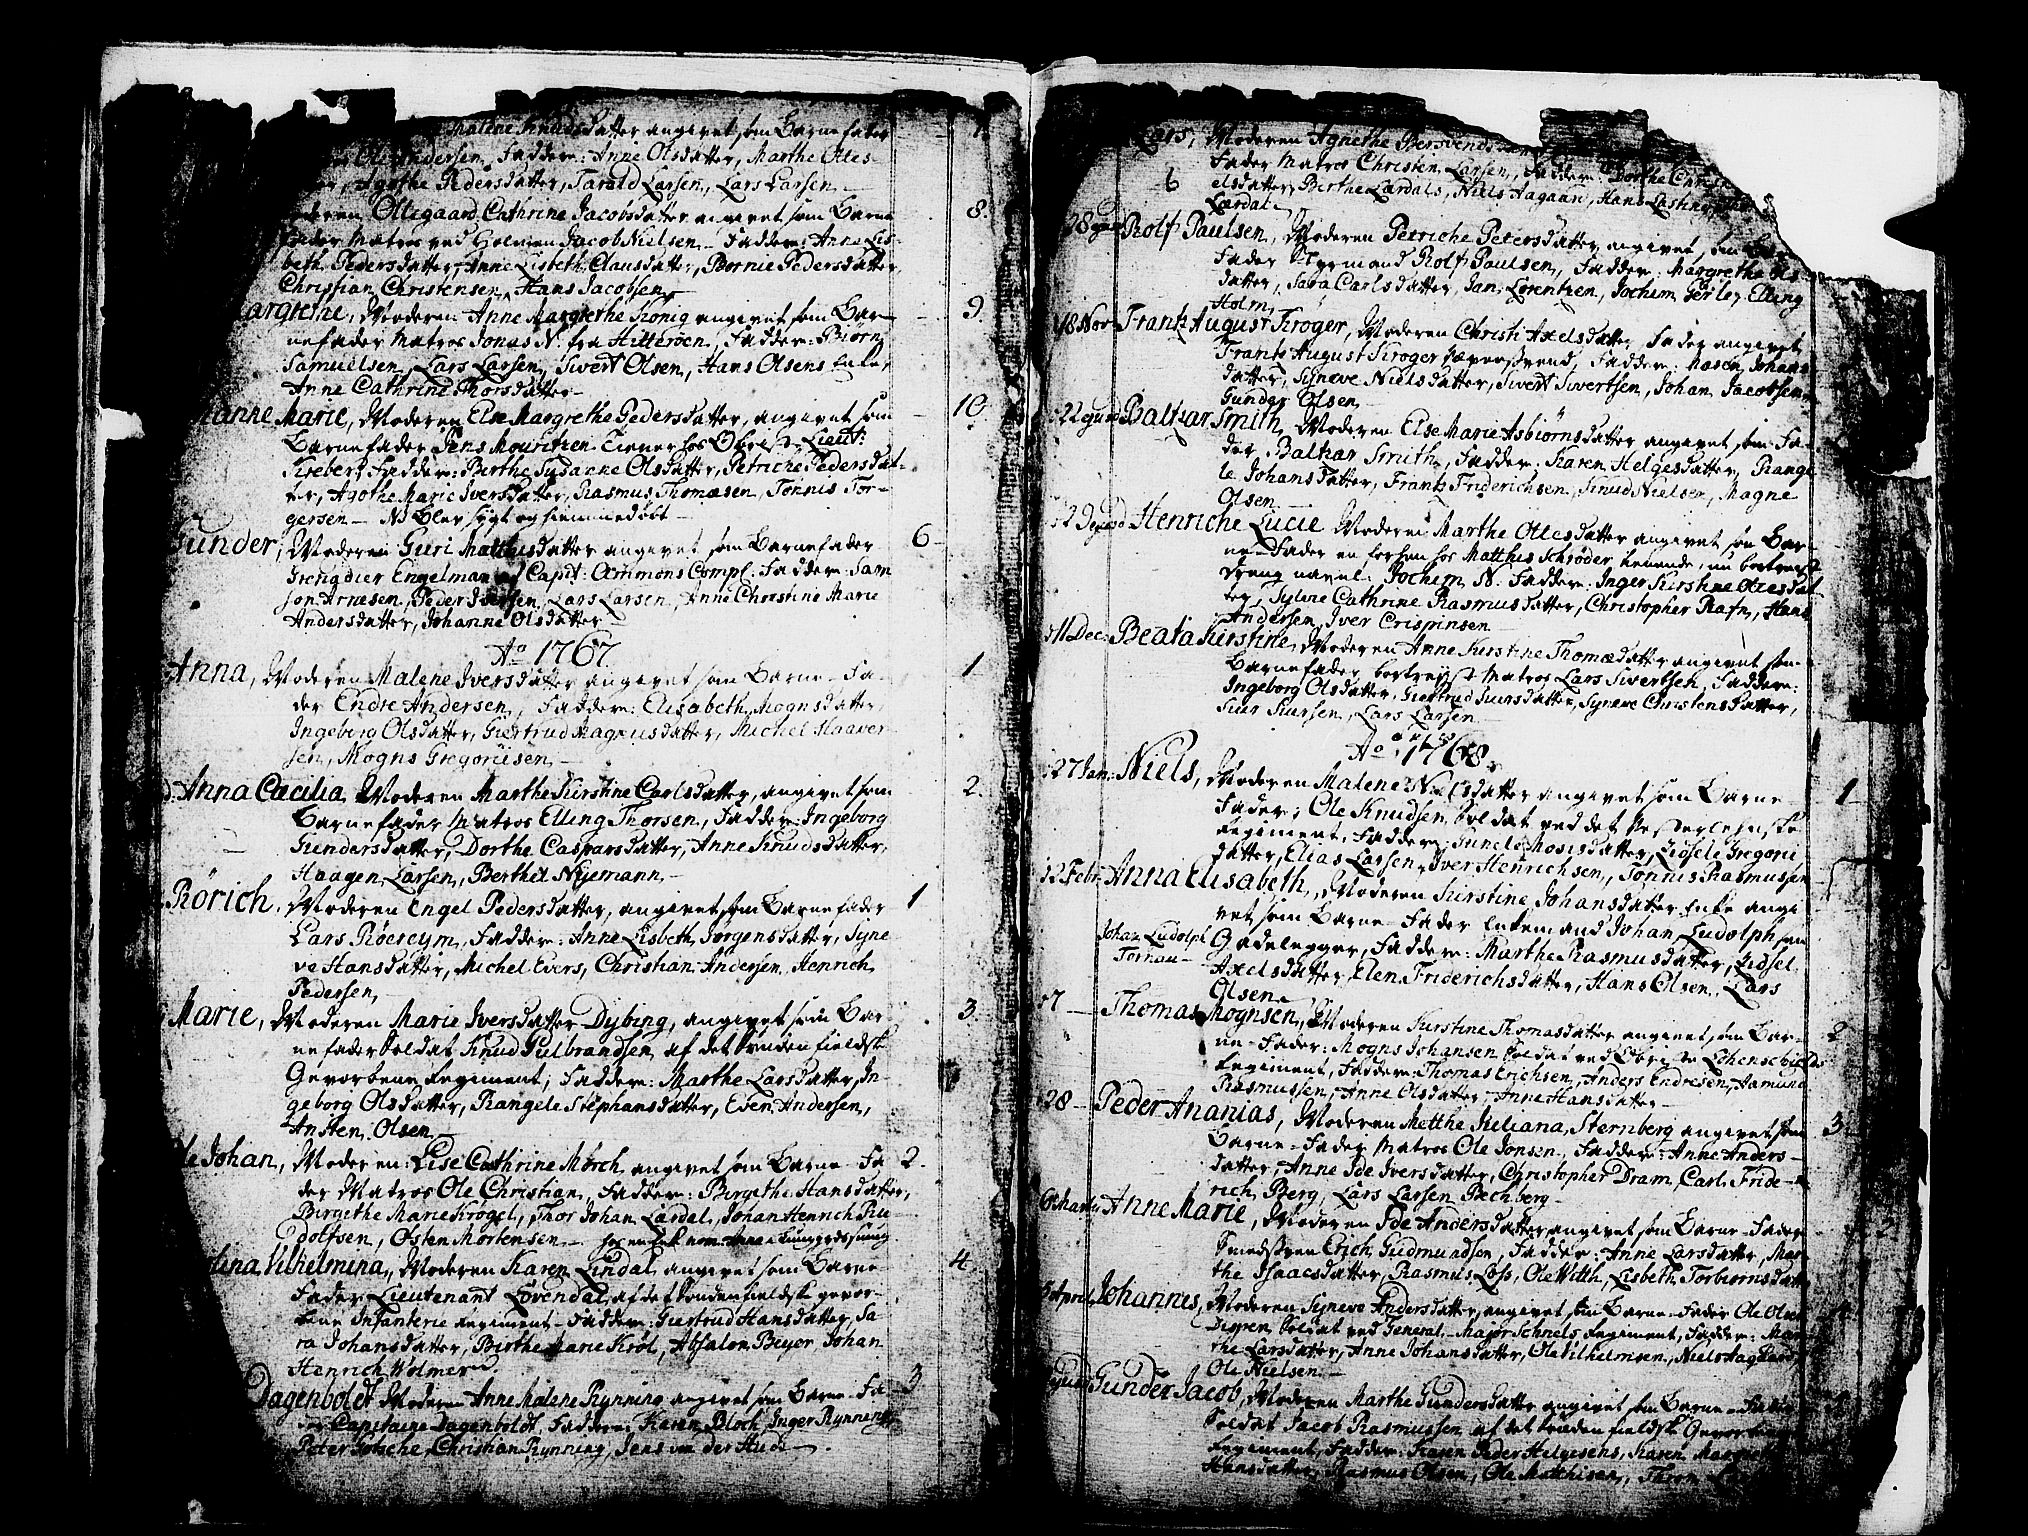 Malene Knudsdatter angivet som Barnefader 7.
Ole Andersen, Faddere: Anne Olsdatter, Marthe Oles-
Agethe Pedersdatter, Tarald Larsen, Lars Larsen
Moderen Oltegaard Cathrine Jacobsdatter angivet som Barne 8.
fader Matros ved Holmen Jacob Nielsen, Faddere: Anne Lis-
beth Pedersdatter, Anne Lisbeth Clausdatter, Bornie Pedersdatter,
Christian Christensen, Hans Jacobsen
Margrethe, Moderen Anne Margrethe Konig angivet som Bar- 9.
nefader Matros Jonas N. fra Hitteröen, Faddere: Biörn
Samuelsen, Lars Larsen, Sivert Olsen, Hans Olsens Enke,
Anne Cathrine Thorsdatter
anne Marie, Moderen Else Margrethe Pedersdatter, angivet som 10.
Barnefader Jens Mouritzen Tiener hos Obrist-Lieut:
Faddere: Birthe Susanne Olsdatter, Petriche Pedersdat-
ter, Agothe Marie Iversdatter, Rasmus Thomæsen, Tönnis Tor-
gersen - NB Blev sygt og hiemmedöbt
Gunder, Moderen Guri Matthisdatter angivet som Barnefader 6
Grengdier Engelman af Capit: Ammons Comp!. Faddere: Sam
son Arnesen, Peder Iversen, Lars Larsen, Anne Christine Marie
Andersdatter, Johanne Olsdatter
Ao 1767.
Anna, Moderen Malene Iversdatter angivet som Barne-Fa- 1
der Endre Andersen, Faddere: Elisabeth Mognsdatter,
Ingeborg Olsdatter, Giertrud Magnusdatter, Michel Haaver-
sen, Mogns Gregoriisen
Anna Cæcilia, Moderen Marthe Kirstine Carlsdatter, angivet som 2.
Barnefader Matros Elling Thorsen, Faddere: Ingeborg
Gundersdatter, Dorthe Caspersdatter, Anne Knudsdatter,
Haagen Larsen, Berthel Nyemann
Rörich, Moderen Engel Pedersdatter, angivet som Barnefader 1
Lars Röereym, Faddere: Anne Lisbeth Jörgensdatter, Syne-
ve Hansdatter, Michel Evers, Christian Andersen, Henrich
Pedersen,
Marie, Moderen Marie Iversdatter Dybing, angivet som Bar- 3.
nefader Soldat Knud Gulbrandsen af det Syndenfieldske
Gevorbene Regiment, Faddere: Marthe Larsdatter, In-
geborg Olsdatter, Rangele Stephansdatter, Even Andersen,
Ansten Olsen
Ole Johan, Moderen Lise Cathrine Mörch angivet som Barne-Fa 2.
der Matros Ole Christian, Faddere: Birgethe Hansdatter,
Birgethe Marie Krögel, Thor Johan Lardal, Johan Henrich Ru-
dolfsen, Osten Mortensen
lina Vilhelmina, Moderen Karen Lindal angivet som Barne 4.
Fader Lieutenant Lövendal af det Söndenfieldske gevor-
bene Infanterie Regiment, Faddere: Giertrud Hansdatter, Sa-
ra Johansdatter, Birthe Marie Kröl, Absalon Beyer Johan
Henrich Wolmer
Dagenboldt, Moderen Anne Malene Rynning angivet som Barne-Fa 3
der Capitaine Dagenboldt Faddere: Karen Bloch, Inger Rynning,
Peter Jotsche, Christian Rynning, Jens von der Hude
Lars, Moderen Agnethe Bersvends
Fader Matros Christen Larsen, Faddere: Dorthe Christ
6 elsdatter, Birthe Lardals, Niels Aagaard, Hans
Lardal
28 Rolf Paulsen, Moderen Petriche Petersdatter angivet som Bar
Fader Styrmand Rolf Paulsen, Faddere: Margrethe Ols
datter, Sara Carlsdatter, Jan Lorentzen, Jochim Gerley, Elling
Holm
18 Nov Frantz August Kröger, Moderen Christi Axelsdatter, Fader angivet
Frantz August Kröger, Faddere: Maren Johans
datter, Syneve Nielsdatter, Sivert Sivertsen, Johan Jacobsen,
Gunder Olsen
22 Baltzar Smith, Moderen Else Marie Asbiörnsdatter angivet som Fa-
der Baltzar Smith, Faddere: Karen Helgesdatter, Range
le Johansdatter, Frantz Friderichsen, Knud Nielsen, Magne
Olsen
29 Henriche Lucie Moderen Marthe Olesdatter angivet som Bar-
ne-Fader en hos Matthis Schröder tienende, nu bortreyst
Dreng navnl: Jochim N. Faddere: Inger Kirstine Olesdat-
ter, Sylene Cathrine Rasmusdatter, Christopher Rafn, Hans
Andersen, Iver Crispinsen
11 Dec: Beata Kirstine, Moderen Anne Kirstine Thomædatter angivet som
Barnefader bortreyst Matros Lars Sivertsen, Faddere:
Ingeborg Olsdatter, Giertrud Siursdatter, Syneve Christensdatter,
Siur Siursen, Lars Larsen
Ao 1768.
27 Jan: Niels, Moderen Malene Nielsdatter angivet som Barne 1
Fader: Ole Knudsen Soldat ved det Vesterlehnske
Regiment, Faddere: Gunele Mosisdatter, Zidsele Gregorii
datter, Elias Larsen, Iver Henrichsen, Tönnis Rasmussen
12 Febr: Anna Elisabeth, Moderen Kirstine Johansdatter Enke angi-
vet som Barne-Fader Enkemand Johan Ludolph som
Johan Ludolph Gadelegger, Faddere: Marthe Rasmusdatter, Zidsel
Tornau Axelsdatter, Elen Friderichsdatter, Hans Olsen, Lars
Olsen
7 Thomas Mognsen, Moderen Kirstine Thomasdatter angivet som Bar- 2
ne-Fader: Mogns Johansen Soldat ved Obriste Echenschiolds
Regiment, Faddere: Thomas Erichsen, Anders Endresen, Aamund
Rasmussen, Anne Olsdatter, Anne Hansdatter
28 Peder Ananias, Moderen Metthe Juliana Sternberg angivet som 3
Barne-Fader Matros Ole Jonsen, Faddere: Anne Anders-
datter, Anne Ide Iversdatter, Christopher Dram, Carl Fride-
rich Berg, Lars Larsen Bechberg
6 Martii Anne Marie, Moderen Ide Andersdatter angivet som Barne-Fader 2
Smedsvend Erich Gudmundsen, Faddere: Anne Larsdatter, Mar-
the Isaacsdatter, Rasmus Löss, Ole Witth, Lisbeth Torbiörnsdatter
April Johannis, Moderen Syneve Andersdatter, angivet som Barne-Fader Ole Olsen
Soldat ved General-Major Schnels Regiment, Faddere: Mar-
the Larsdatter, Anne Johansdatter, Ole Vilhelmsen, Niels Aagaard,
Ole Nielsen
Gunder Jacob, Moderen Marthe Gundersdatter angivet som Barne-Fader
Soldat Jacob Rasmussen af det Söndenfieldske Gevorbene
Regiment, Faddere: Karen Peder Helgesens, Karen
Hansdatter, Rasmus Olsen, Ole Matthisen,